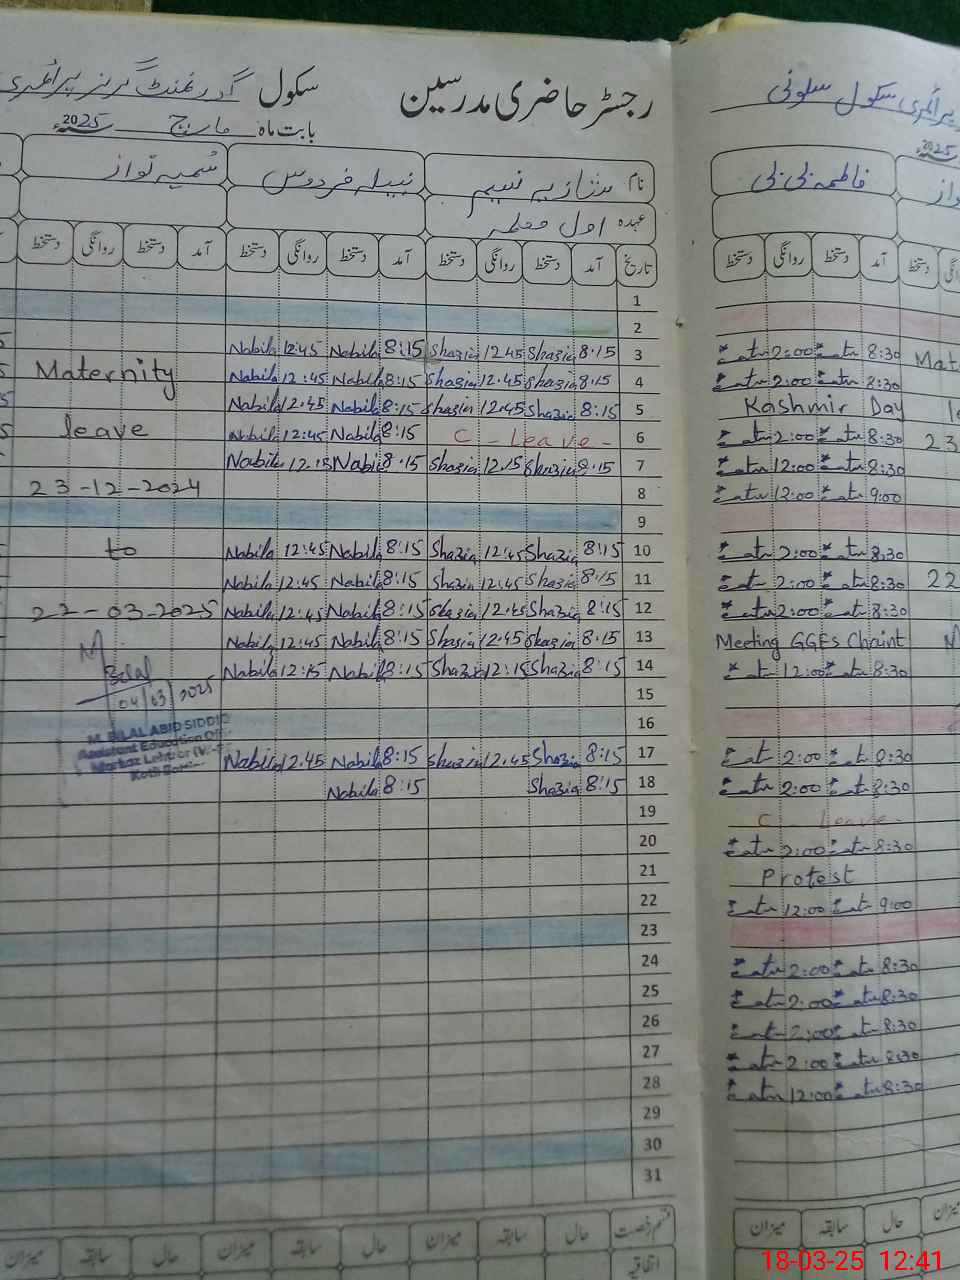 رجسٹر حاضری مدرسین سکول گورنمنٹ گرلز پرائمری
بابت ماہ مارچ 2025
نام شازیہ نسیم نبیلہ فردوس سُمیہ نواز
عہدہ اول معلمہ
تاریخ آمد دستخط روانگی دستخط آمد دستخط روانگی دستخط آمد دستخط روانگی دستخط
1
2
Nabila 12:45 Nabila 8:15 Shazia 12.45 Shazia 8.15 3
Maternity Nabila 12:45 Nabila 8:15 Shazia 12.45 Shazia 8.15 4
Nabila 12.45 Nabila 8:15 Shazia 12.45 Shazia 8:15 5
leave Nabila 12:45 Nabila 8:15 C - Leave - 6
Nabila 12.15 Nabila 8.15 Shazia 12.15 Shazia 8.15 7
23-12-2024 8
9
to Nabila 12:45 Nabila 8:15 Shazia 12:45 Shazia 8:15 10
Nabila 12:45 Nabila 8:15 Shazia 12:45 Shazia 8:15 11
22-03-2025 Nabila 12:45 Nabila 8:15 Shazia 12.45 Shazia 8:15 12
Nabila 12:45 Nabila 8:15 Shazia 12.45 Shazia 8.15 13
Nabila 12:15 Nabila 8:15 Shazia 12:15 Shazia 8:15 14
04/03/2025
15
M. BILAL ABID SIDDIQ
16
Assistant Education
Markaz
Nabila 12.45 Nabila 8:15 Shazia 12.45 Shazia 8:15 17
Nabila 8:15 Shazia 8:15 18
19
20
21
22
23
24
25
26
27
28
29
30
31
قسم رخصت حال سابقہ میزان حال سابقہ میزان حال سابقہ میزان
اتفاقیہ
پرائمری سکول سلونی
2025
فاطمہ بی بی
آمد دستخط روانگی دستخط
2:00 8:30
2:00 8:30
Kashmir Day
2:00 8:30 23
12:00 8:30
12:00 9:00
2:00 8:30
2:00 8:30 22
2:00 8:30
Meeting GGES Chaint
12:00 8:30
2:00 8:30
2:00 8:30
C Leave -
2:00 8:30
Protest
12:00 9:00
2:00 8:30
2:00 8:30
2:00 8:30
2:00 8:30
12:00 8:30
حال سابقہ میزان
18-03-25 12:41